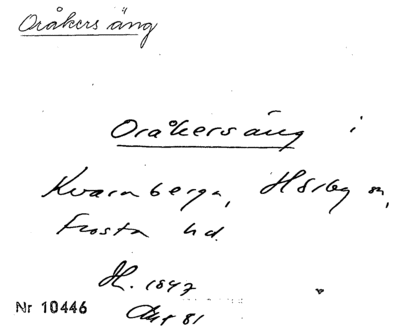 Oråkers äng
Oråkersäng i
Kvarnberga, Hörby sn,
Frosta hd.
H. 1847
Akt 81
Nr 10446